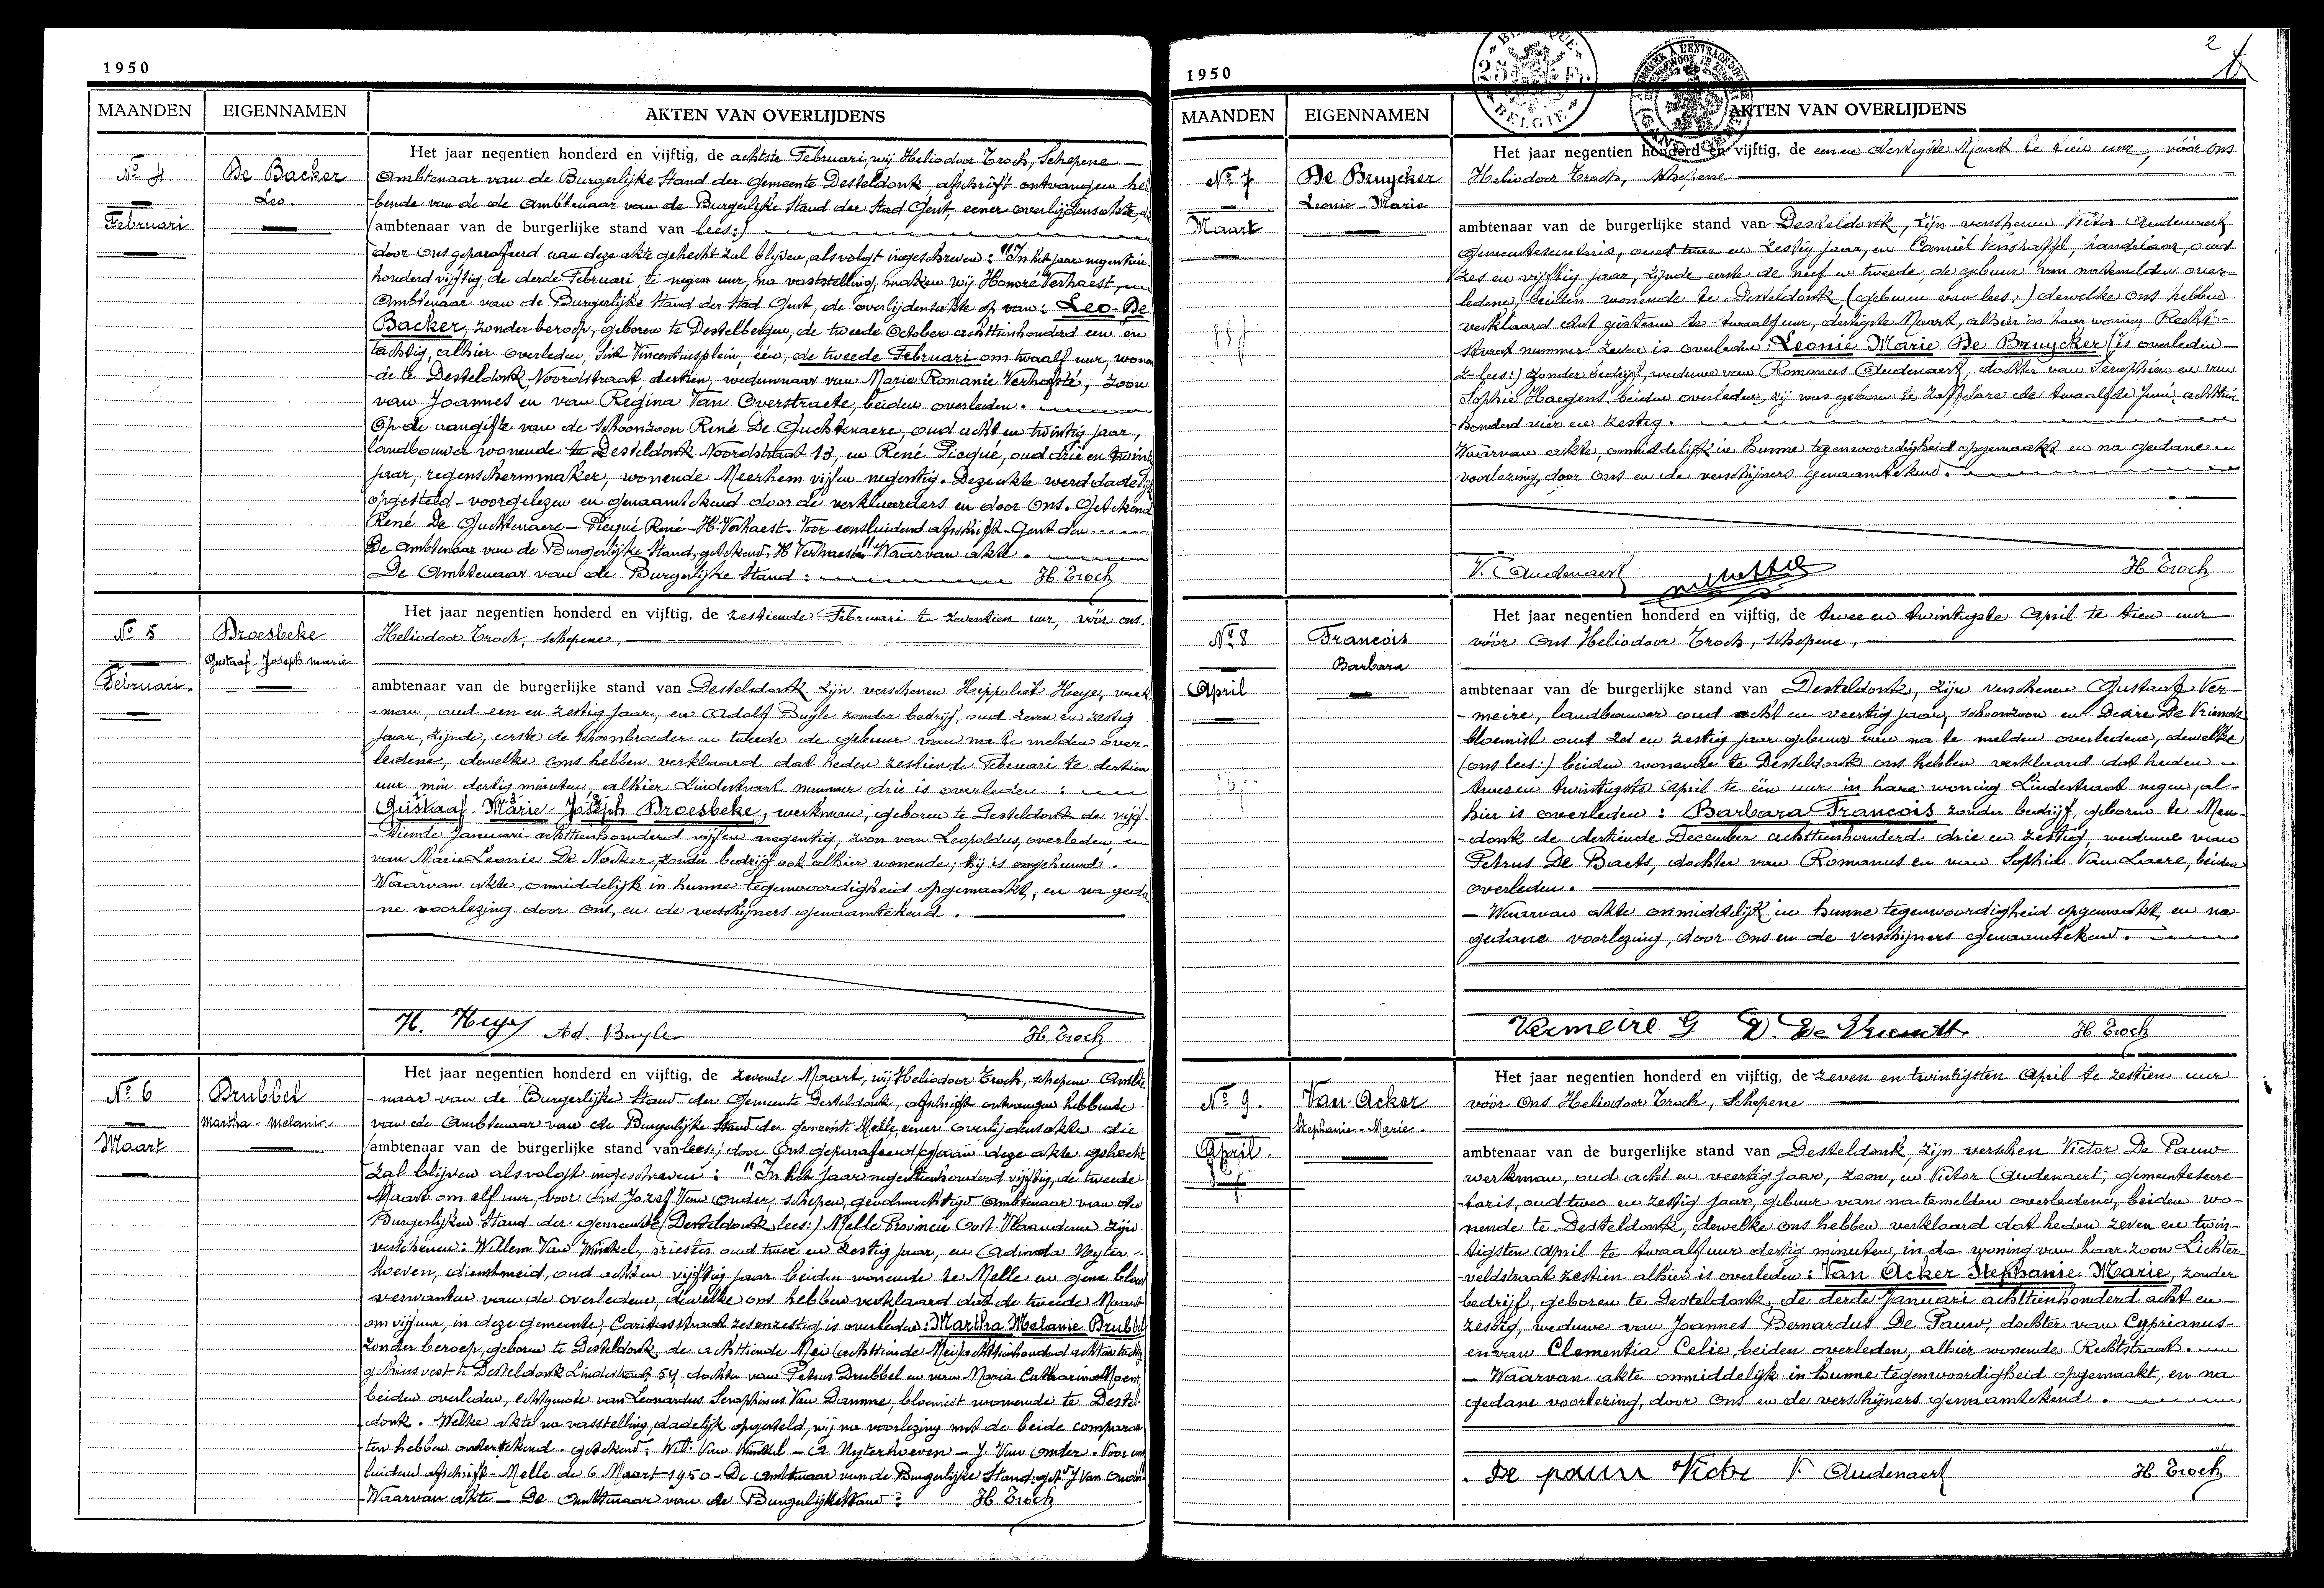 1950
MAANDEN EIGENNAMEN AKTEN VAN OVERLIJDENS
Nº 4
Februari
De Backer
Leo.
Het jaar negentien honderd en vijftig, de achtste Februari, wij Heliodoor Troch, Schepene
Ambtenaar van de Burgerlijke Stand der Gemeente Desteldonk, afschrift ontvangen heb
bende van de de Ambtenaar van de Burgerlijke Stand der Stad Gent, eener overlijdensakte, die
(ambtenaar van de burgerlijke stand van lees:)
door ons geparafeerd aan deze akte gehecht zal blijven, als volgt ingeschreven: "In het jaar negentien
honderd vijftig, de derde Februari, te negen uur, na vaststelling, maken wij Honoré Verhaest,
Ambtenaar van de Burgerlijke Stand der Stad Gent, de overlijdensakte op van: Leo De
Backer, zonder beroep, geboren te Destelbergen, de tweede October achttienhonderd een en
tachtig, alhier overleden, Sint Vincentiusplein, één, de tweede Februari om twaalf uur, wonen
de te Desteldonk, Noordstraat, dertien, weduwnaar van Marie Romanie Verhasté, zoon
van Joannes en van Regina Van Overstraete, beiden overleden.
Op de aangifte van de schoonzoon René De Guchtenaere, oud acht en twintig jaar,
landbouwer wonende te Desteldonk Noordstraat 13, en René Picqué, oud drie en twintig
jaar, regenschermmaker, wonende Meerhem vijf en negentig. Deze akte werd dadelijk
opgesteld - voorgelezen en genaamtekend door de verklaarders en door ons. Getekend
René De Guchtenaere - Picqué René - H. Verhaest. Voor eensluidend afschrift Gent den
De Ambtenaar van de Burgerlijke Stand, getekend, H Verhaest" Waarvan akte.
De Ambtenaar van de Burgerlijke Stand: H. Troch
Nº 5
Februari.
Droesbeke
Gustaaf Joseph marie
Het jaar negentien honderd en vijftig, de zestiende Februari te zeventien uur, vóór ons.
Heliodoor Troch, schepene,
ambtenaar van de burgerlijke stand van Desteldonk zijn verschenen Hippoliet Heye, werk
man, oud een en zestig jaar, en Adolf Buyle zonder bedrijf, oud zeven en zestig
jaar, zijnde, eerste de schoonbroeder en tweede de gebuur van na te melden over-
ledene, dewelke ons hebben verklaard dat heden zestiende Februari te dertien
uur min dertig minuten, alhier Lindestraat nummer drie is overleden:
Gustaaf Marie Joseph Droesbeke, werkman, geboren te Desteldonk de vijf-
tiende Januari achttienhonderd vijf en negentig, zoon van Leopoldus, overleden, en
van Marie Leonie De Nocker, zonder bedrijf ook alhier wonende; hij is ongehuwd.
Waarvan akte, onmiddelijk in hunne tegenwoordigheid opgemaakt, en na geda
ne voorlezing door ons, en de verschijners genaamtekend.
H. Heye Ad. Buyle H. Troch
Nº 6
Maart
Drubbel
Martha-Melanie
Het jaar negentien honderd en vijftig, de zevende Maart, wij Heliodoor Troch, schepene Ambte
naar van de Burgerlijke Stand der Gemeente Desteldonk, afschrift ontvangen hebbende
van de Ambtenaar van de Burgerlijke Stand der gemeente Melle, eener overlijdensakte die
(ambtenaar van de burgerlijke stand van lees:) door ons geparafeerd, aan deze akte gehecht
zal blijven als volgt ingeschreven: "In het jaar negentienhonderd vijftig, de tweede
Maart om elf uur, voor ons Jozef Van Onder, schepen, gevolmachtigd Ambtenaar van den
Burgerlijken Stand der gemeente (Desteldonk lees:) Melle Provincie Oost-Vlaanderen zijn
verschenen: Willem Van Winkel, priester oud twee en zestig jaar, en Adinda Uyter-
hoeven, dienstmeid, oud acht en vijftig jaar beiden wonende te Melle en geene bloed
verwanten van de overledene, dewelke ons hebben verklaard dat de tweede Maart
om vijf uur, in deze gemeente, Caritasstraat zesenzestig is overleden: Martha Melanie Drubbel
zonder beroep, geboren te Desteldonk de achttiende Mei (achttiende Mei) achttienhonderd acht en tachtig
gehuisvest te Desteldonk Lindestraat 54, dochter van Petrus Drubbel en van Maria Catharina Moens,
beiden overleden, echtgenote van Leonardus Seraphinus Van Damme, bloemist wonende te Destel
donk. Welke akte na vasstelling, dadelijk opgesteld, wij na voorlezing met de beide comparan
ten hebben ondertekend. getekend: Wil. Van Winkel - A. Uyterhoeven - J. Van Onder. Voor een
luidend afschrift - Melle de 6 Maart 1950 - De Ambtenaar van de Burgerlijke Stand: get. J Van Onder
Waarvan akte - De Ambtenaar van de Burgerlijke Stand: H Troch
1950
2
MAANDEN EIGENNAMEN AKTEN VAN OVERLIJDENS
Nº 7
Maart
De Bruycker
Leonie-Marie
Het jaar negentien honderd en vijftig, de een en dertigste Maart te tien uur, vóór ons
Heliodoor Troch, schepene
ambtenaar van de burgerlijke stand van Desteldonk, zijn verschenen Victor Audenaert
gemeentesecretaris, oud twee en zestig jaar, en Camiel Verstraffel, handelaar, oud
zes en vijftig jaar, zijnde eerste de neef en tweede de gebuur van natemelden over-
ledene, beiden wonende te Desteldonk (gebuur van lees:) dewelke ons hebben
verklaard dat gisteren te twaalf uur, dertigste Maart, alhier in haar woning Recht-
straat nummer zeven is overleden: Leonie Marie De Bruycker (is overleden
z lees:) zonder bedrijf, weduwe van Romanus Audenaert, dochter van Seraphien en van
Sophie Haegens beiden overleden, zij was geboren te Zaffelare de twaalfde Juni achttien
honderd vier en zestig.
Waarvan akte, onmiddelijk in hunne tegenwoordigheid opgemaakt en na gedane
voorlezing, door ons en de verschijners genaamtekend.
V. Audenaert H Troch
Nº 8
April
Francois
Barbara
Het jaar negentien honderd en vijftig, de twee en twintigste April te tien uur
vóór ons Heliodoor Troch, schepene,
ambtenaar van de burgerlijke stand van Desteldonk, zijn verschenen Gustaaf Ver-
meire, landbouwer oud acht en veertig jaar, schoonzoon en Desire De Vriendt
bloemist oud zes en zestig jaar gebuur van na te melden overledene, dewelke
(ons lees:) beiden wonende te Desteldonk ons hebben verklaard dat heden
twee en twintigste April te één uur in hare woning Lindestraat negen, al-
hier is overleden: Barbara Francois zonder bedrijf, geboren te Men-
donk de dertiende December achttienhonderd drie en zestig, weduwe van
Petrus De Baets, dochter van Romanus en van Sophie Van Laere, beiden
overleden.
Waarvan akte onmiddelijk in hunne tegenwoordigheid opgemaakt, en na
gedane voorlezing, door ons en de verschijners genaamtekend.
Vermeire G D. De Vriendt. H. Troch
Nº 9.
April.
Van Acker
Stephanie-Marie.
Het jaar negentien honderd en vijftig, de zeven en twintigsten April te zestien uur
vóór ons Heliodoor Troch, Schepene
ambtenaar van de burgerlijke stand van Desteldonk, zijn verschen Victor De Pauw
werkman, oud acht en veertig jaar, zoon, en Victor Audenaert, gemeentesecre-
taris, oud twee en zestig jaar, gebuur van na temelden overledene, beiden wo-
nende te Desteldonk, dewelke ons hebben verklaard dat heden zeven en twin-
tigsten April te twaalf uur dertig minuten, in de woning van haar zoon Lichter-
veldstraat zestien alhier is overleden: Van Acker Stephanie Marie, zonder
bedrijf, geboren te Desteldonk, de derde Januari achttienhonderd acht en
zestig, weduwe van Joannes Bernardus De Pauw, dochter van Cyprianus
en van Clementia Celie, beiden overleden, alhier wonende Rechtstraat.
Waarvan akte onmiddelijk in hunne tegenwoordigheid opgemaakt, en na
gedane voorlezing, door ons en de verschijners genaamtekend.
De pauw Victor V. Audenaert H. Troch